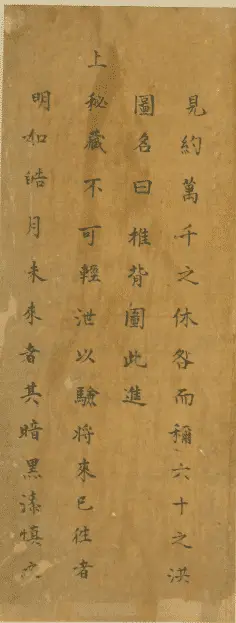 見約萬千之休咎而穪六十之洪
圖名曰推背圖此進
上秘藏不可輕泄以驗将來已徃者
明如皓月未來者其暗黑漆慎之